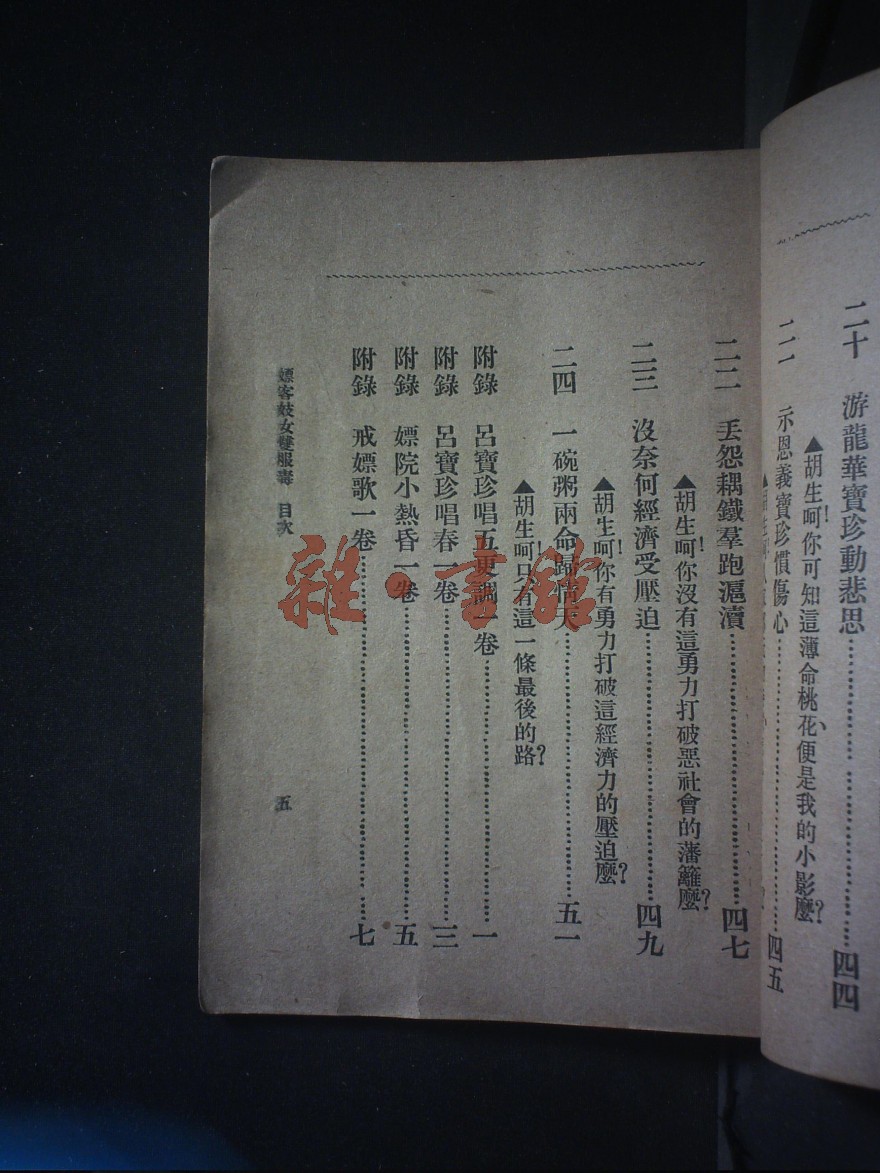 二十　游龍華寶珍動悲思……四四
▲胡生呵！你可知這薄命桃花、便是我的小影麼？
二一　示恩義寶珍慣傷心……四五
二二　丟怨耦鐵羣跑滬瀆……四七
▲胡生呵！你沒有這勇力打破惡社會的藩籬麼？
二三　沒奈何經濟受壓迫……四九
▲胡生呵！你有勇力打破這經濟力的壓迫麼？
二四　一碗粥兩命歸情天……五一
▲胡生呵！只有這一條最後的路？
附錄　呂寶珍唱五更調一卷……一
附錄　呂寶珍唱春一卷……三
附錄　嫖院小熱昏一卷……五
附錄　戒嫖歌一卷……七
嫖客妓女雙服毒　目次
五
雜·書館